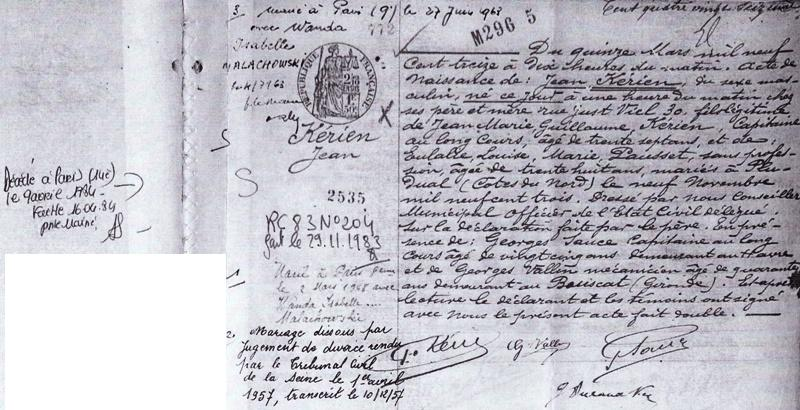 3. marié à Paris (9e) le 27 Juin 1963
avec Wanda
Isabelle
MALACHOWSKI
772
M296 5
Cent quatre vingt seize
RÉPUBLIQUE FRANÇAISE
Kérien
Jean
2535
RC 83 N° 204
fait le 29.11.1983
1
Marié à Paris
le 2 Mai 1948 avec
Wanda Isabelle
Malachowski
2. Mariage dissous par
jugement de divorce rendu
par le Tribunal Civil
de la Seine le 1er avril
1957, transcrit le 10/12/57
Décédé à Paris (14e)
le 9 avril 1984
Faette 16.04.84
Du quinze Mars mil neuf
Cent treize à Dix heures du matin. Acte de
Naissance de: Jean Kérien, du sexe mas-
culin, né ce jour à une heure du matin chez
ses père et mère rue Just Viel 30. fils légitime
de Jean Marie Guillaume, Kérien, Capitaine
au long Cours, âgé de trente sept ans, et de
Eulalie, Louise, Marie, Pausset, sans profes-
sion, âgée de trente huit ans, mariés à Plu-
dual (Côtes du Nord) le neuf Novembre
mil neuf cent trois. Dressé par nous Conseiller
Municipal Officier de l'Etat Civil délégué.
Sur la déclaration faite par le père. En pré-
sence de: Georges Sauce Capitaine au long
Cours âgé de vingt cinq ans demeurant au Havre
et de Georges Vallin mécanicien âgé de quarante
ans demeurant au Bouscat (Gironde). Et après
lecture le déclarant et les témoins ont signé
avec Nous le présent acte fait double.